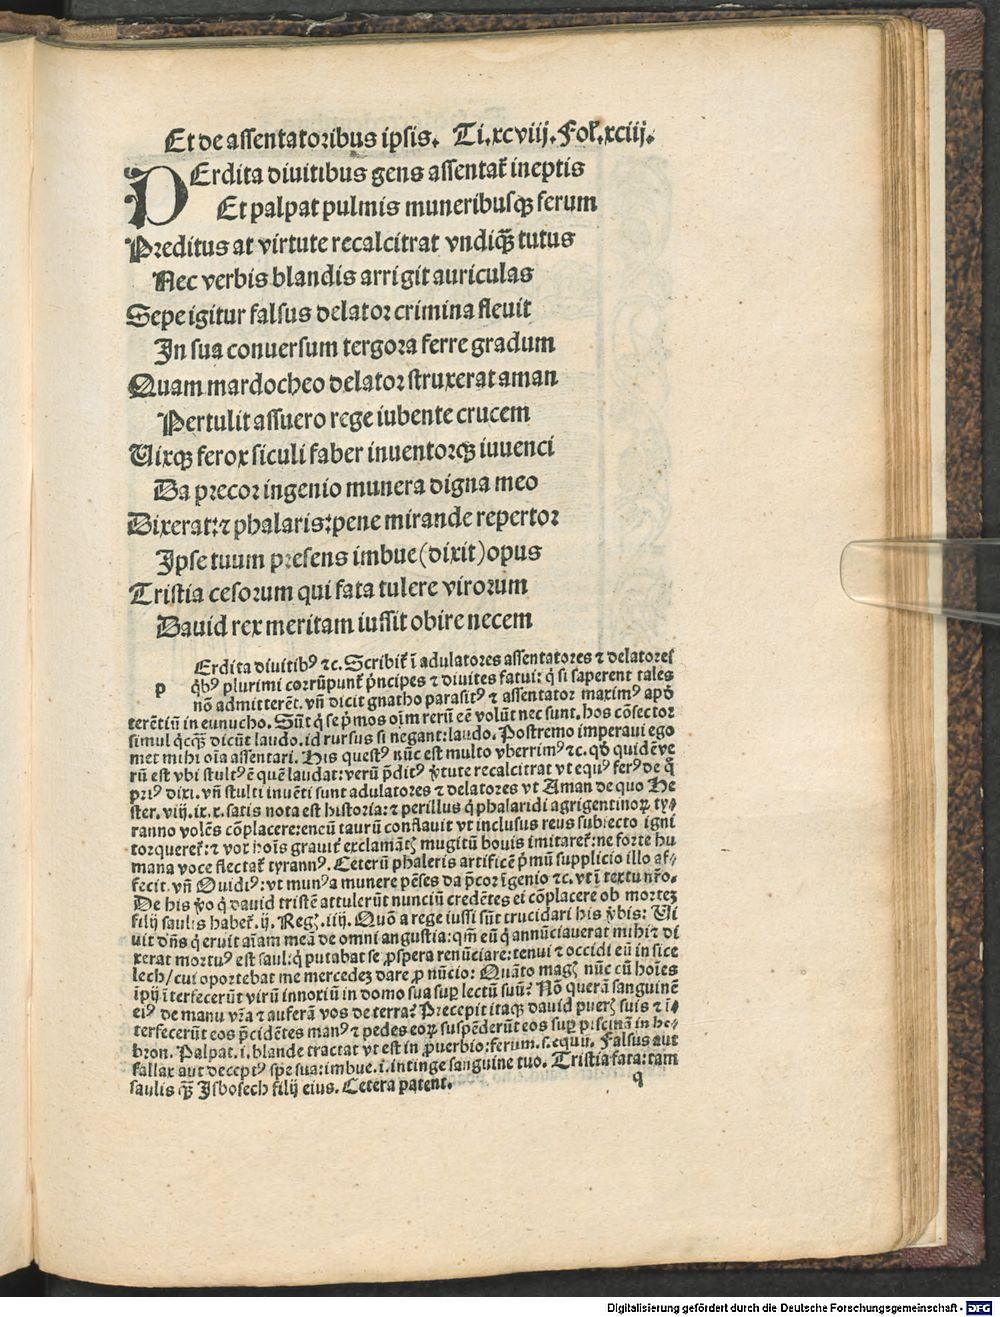 Et de assentatoribus ipsis. Ti.xcviij.Fol̃.xciij.
PErdita diuitibus gens assentat̃ ineptis
Et palpat pulmis muneribusqꝫ ferum
Preditus at virtute recalcitrat vndiqꝫ̃ tutus
Nec verbis blandis arrigit auriculas
Sepe igitur falsus delator crimina fleuit
In sua conuersum tergora ferre gradum
Quam mardocheo delator struxerat aman
Pertulit assuero rege iubente crucem
Uixqꝫ ferox siculi faber inuentorqꝫ iuuenci
Da precor ingenio munera digna meo
Dixerat:⁊ phalaris:pene mirande repertor
Ipse tuum presens imbue(dixit)opus
Tristia cesorum qui fata tulere virorum
Dauid rex meritam iussit obire necem
p Erdita diuitibꝰ ⁊c. Scribit̃ ĩ adulatores assentatores ⁊ delatores
q̃bꝰ plurimi corrũpunt̃ p̃ncipes ⁊ diuites fatui: q̃ si saperent tales
nõ admitterẽt. vñ dicit gnatho parasitꝰ ⁊ assentator maximꝰ apð
terẽtiũ in eunucho. Sũt q̃ se p̃mos oĩm rerũ eẽ volũt nec sunt. hos cõsector
simul q̃cqꝫ̃ dicũt laudo. id rursus si negant:laudo. Postremo imperaui ego
met mihi oĩa assentari. His questꝰ nũc est multo vberrimꝰ ⁊c. qð quidẽ ve
rũ est vbi stultꝰ ẽ quẽ laudat: verũ p̃ditꝰ ṽtute recalcitrat vt equꝰ ferꝰ de q̃
priꝰ dixi. vñ stulti inuẽti sunt adulatores ⁊ delatores vt Aman de quo He
ster. viij. ix. x. satis nota est historia: ⁊ perillus q̃ phalaridi agrigentinoꝝ ty⸗
ranno volẽs cõplacere: encũ taurũ conflauit vt inclusus reus subiecto igni
torqueret̃: ⁊ vox hoĩs grauit̃ exclamãtꝭ mugitũ bouis imitaret̃: ne forte hu
mana voce flectat̃ tyrannꝰ. Ceterũ phaleris artificẽ p̃mũ supplicio illo af⸗
fecit. vñ Ouidiꝰ: vt munꝰa munere pẽses da p̃cor ĩgenio ⁊c. vt ĩ textu nr̃o.
De his ṽo q̃ dauid tristẽ attulerũt nunciũ credẽtes ei cõplacere ob mortẽ
filij saulis habet̃. ij. Regꝭ. iiij. Quõ a rege iussi sũt trucidari his ṽbis: Ui
uit dñs q̃ eruit aĩam meã de omni angustia: qm̃ eũ q̃ annũciauerat mihi ⁊ di
xerat mortuꝰ est saul: q̃ putabat se ꝓspera renũciare: tenui ⁊ occidi eũ in sice
lech/cui oportebat me mercedeꝫ dare ꝓ nũcio: Quãto magꝭ nũc cũ hoĩes
ĩpij ĩterfecerũt virũ innoxiũ in domo sua suꝑ lectũ suũ? Nõ querã sanguinẽ
eiꝰ de manu vr̃a ⁊ auferã vos de terra? Precepit itaqꝫ dauid puerꝭ suis ⁊ ĩ⸗
terfecerũt eos p̃cidẽtes manꝰ ⁊ pedes eoꝝ suspẽderũt eos suꝑ piscinã in he⸗
bron. Palpat. i. blande tractat vt est in ꝓuerbio: ferum. s. equũ. Falsus aut
fallax aut deceptꝰ spe sua: imbue. i. intinge sanguine tuo. Tristia fata: tam
saulis qꝫ̃ Isbosech filij eius. Cetera patent.
q
Digitalisierung gefördert durch die Deutsche Forschungsgemeinschaft - DFG